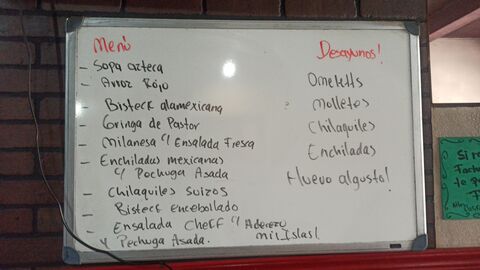 Menú
- Sopa azteca
- Arroz Rojo
- Bisteck alamexicana
- Gringa de Pastor
- Milanesa y Ensalada Fresca
- Enchiladas mexicanas
y Pechuga Asada
- Chilaquiles suizos
- Bisteck encebollado
- Ensalada Cheff y Aderezo
y Pechuga Asada. mil Islas
Desayunos!
Omeletts
Molletes
Chilaquiles
Enchiladas
Huevo algusto!
Si re
Factu